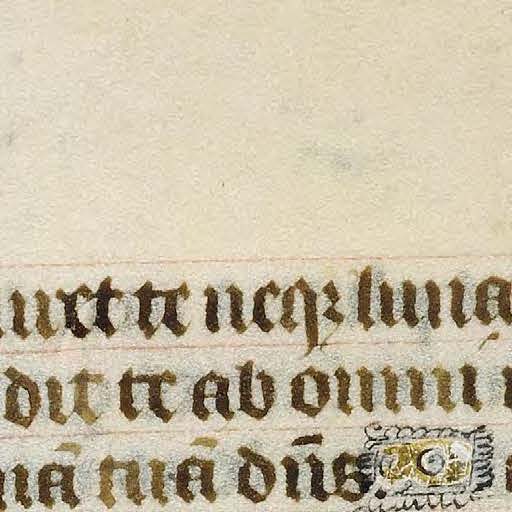 uret te neqꝫ luna
dit te ab omni
mā tuā dn̄s.